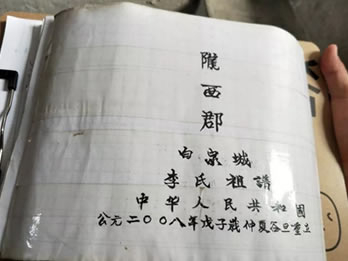 隴西郡
白泉城
李氏祖譜
中华人民共和國
公元二〇〇八年戊子歲仲夏谷旦重立